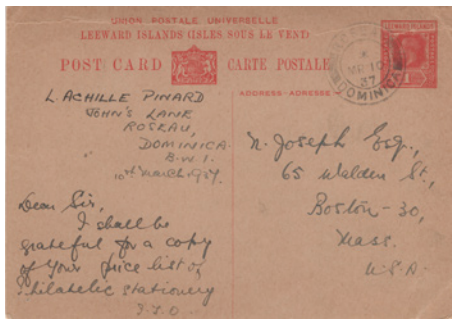 UNION POSTALE UNIVERSELLE
LEEWARD ISLANDS (ISLES SOUS LE VENT)
POST CARD CARTE POSTALE
ADDRESS-ADRESSE
LEEWARD ISLANDS
MR 10
37
DOMINICA
L. ACHILLE PINARD
JOHN'S LANE
ROSEAU,
DOMINICA.
B.W.I.
10th March, 1937.
Dear Sir,
I shall be
grateful for a copy
of your price list of
Philatelic stationery
P.T.O.
N. Joseph Esq.,
65 Walden St.,
Boston-30,
Mass.
U.S.A.